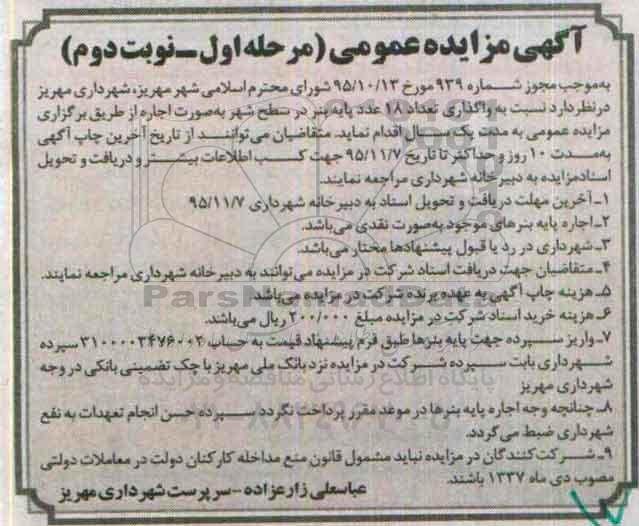 آگهی مزایده عمومی (مرحله اول ـ نوبت دوم)
به‌موجب مجوز شماره ۹۳۹ مورخ ۹۵/۱۰/۱۳ شورای محترم اسلامی شهر مهریز، شهرداری مهریز
درنظر دارد نسبت به واگذاری تعداد ۱۸ عدد پایه بنر در سطح شهر به‌صورت اجاره از طریق برگزاری
مزایده عمومی به مدت یک سال اقدام نماید. متقاضیان می‌توانند از تاریخ آخرین چاپ آگهی
به‌مدت ۱۰ روز و حداکثر تا تاریخ ۹۵/۱۱/۷ جهت کسب اطلاعات بیشتر و دریافت و تحویل
اسناد مزایده به دبیرخانه شهرداری مراجعه نمایند.
۱ـ آخرین مهلت دریافت و تحویل اسناد به دبیرخانه شهرداری ۹۵/۱۱/۷
۲ـ اجاره پایه بنرهای موجود به‌صورت نقدی می‌باشد.
۳ـ شهرداری در رد یا قبول پیشنهادها مختار می‌باشد.
۴ـ متقاضیان جهت دریافت اسناد شرکت در مزایده می‌توانند به دبیرخانه شهرداری مراجعه نمایند.
۵ـ هزینه چاپ آگهی به عهده برنده شرکت در مزایده می‌باشد.
۶ـ هزینه خرید اسناد شرکت در مزایده مبلغ ۲۰۰/۰۰۰ ریال می‌باشد.
۷ـ واریز سپرده جهت پایه بنرها طبق فرم پیشنهاد قیمت به حساب سپرده
شهرداری بابت سپرده شرکت در مزایده نزد بانک ملی مهریز یا چک تضمینی بانکی در وجه
شهرداری مهریز
۸ـ چنانچه وجه اجاره پایه بنرها در موعد مقرر پرداخت نگردد سپرده حسن انجام تعهدات به نفع
شهرداری ضبط می‌گردد.
۹ـ شرکت‌کنندگان در مزایده نباید مشمول قانون منع مداخله کارکنان دولت در معاملات دولتی
مصوب دی ماه ۱۳۳۷ باشند.
عباسعلی زارع‌زاده - سرپرست شهرداری مهریز
ParsNamadData
پایگاه اطلاع رسانی مناقصه و مزایده